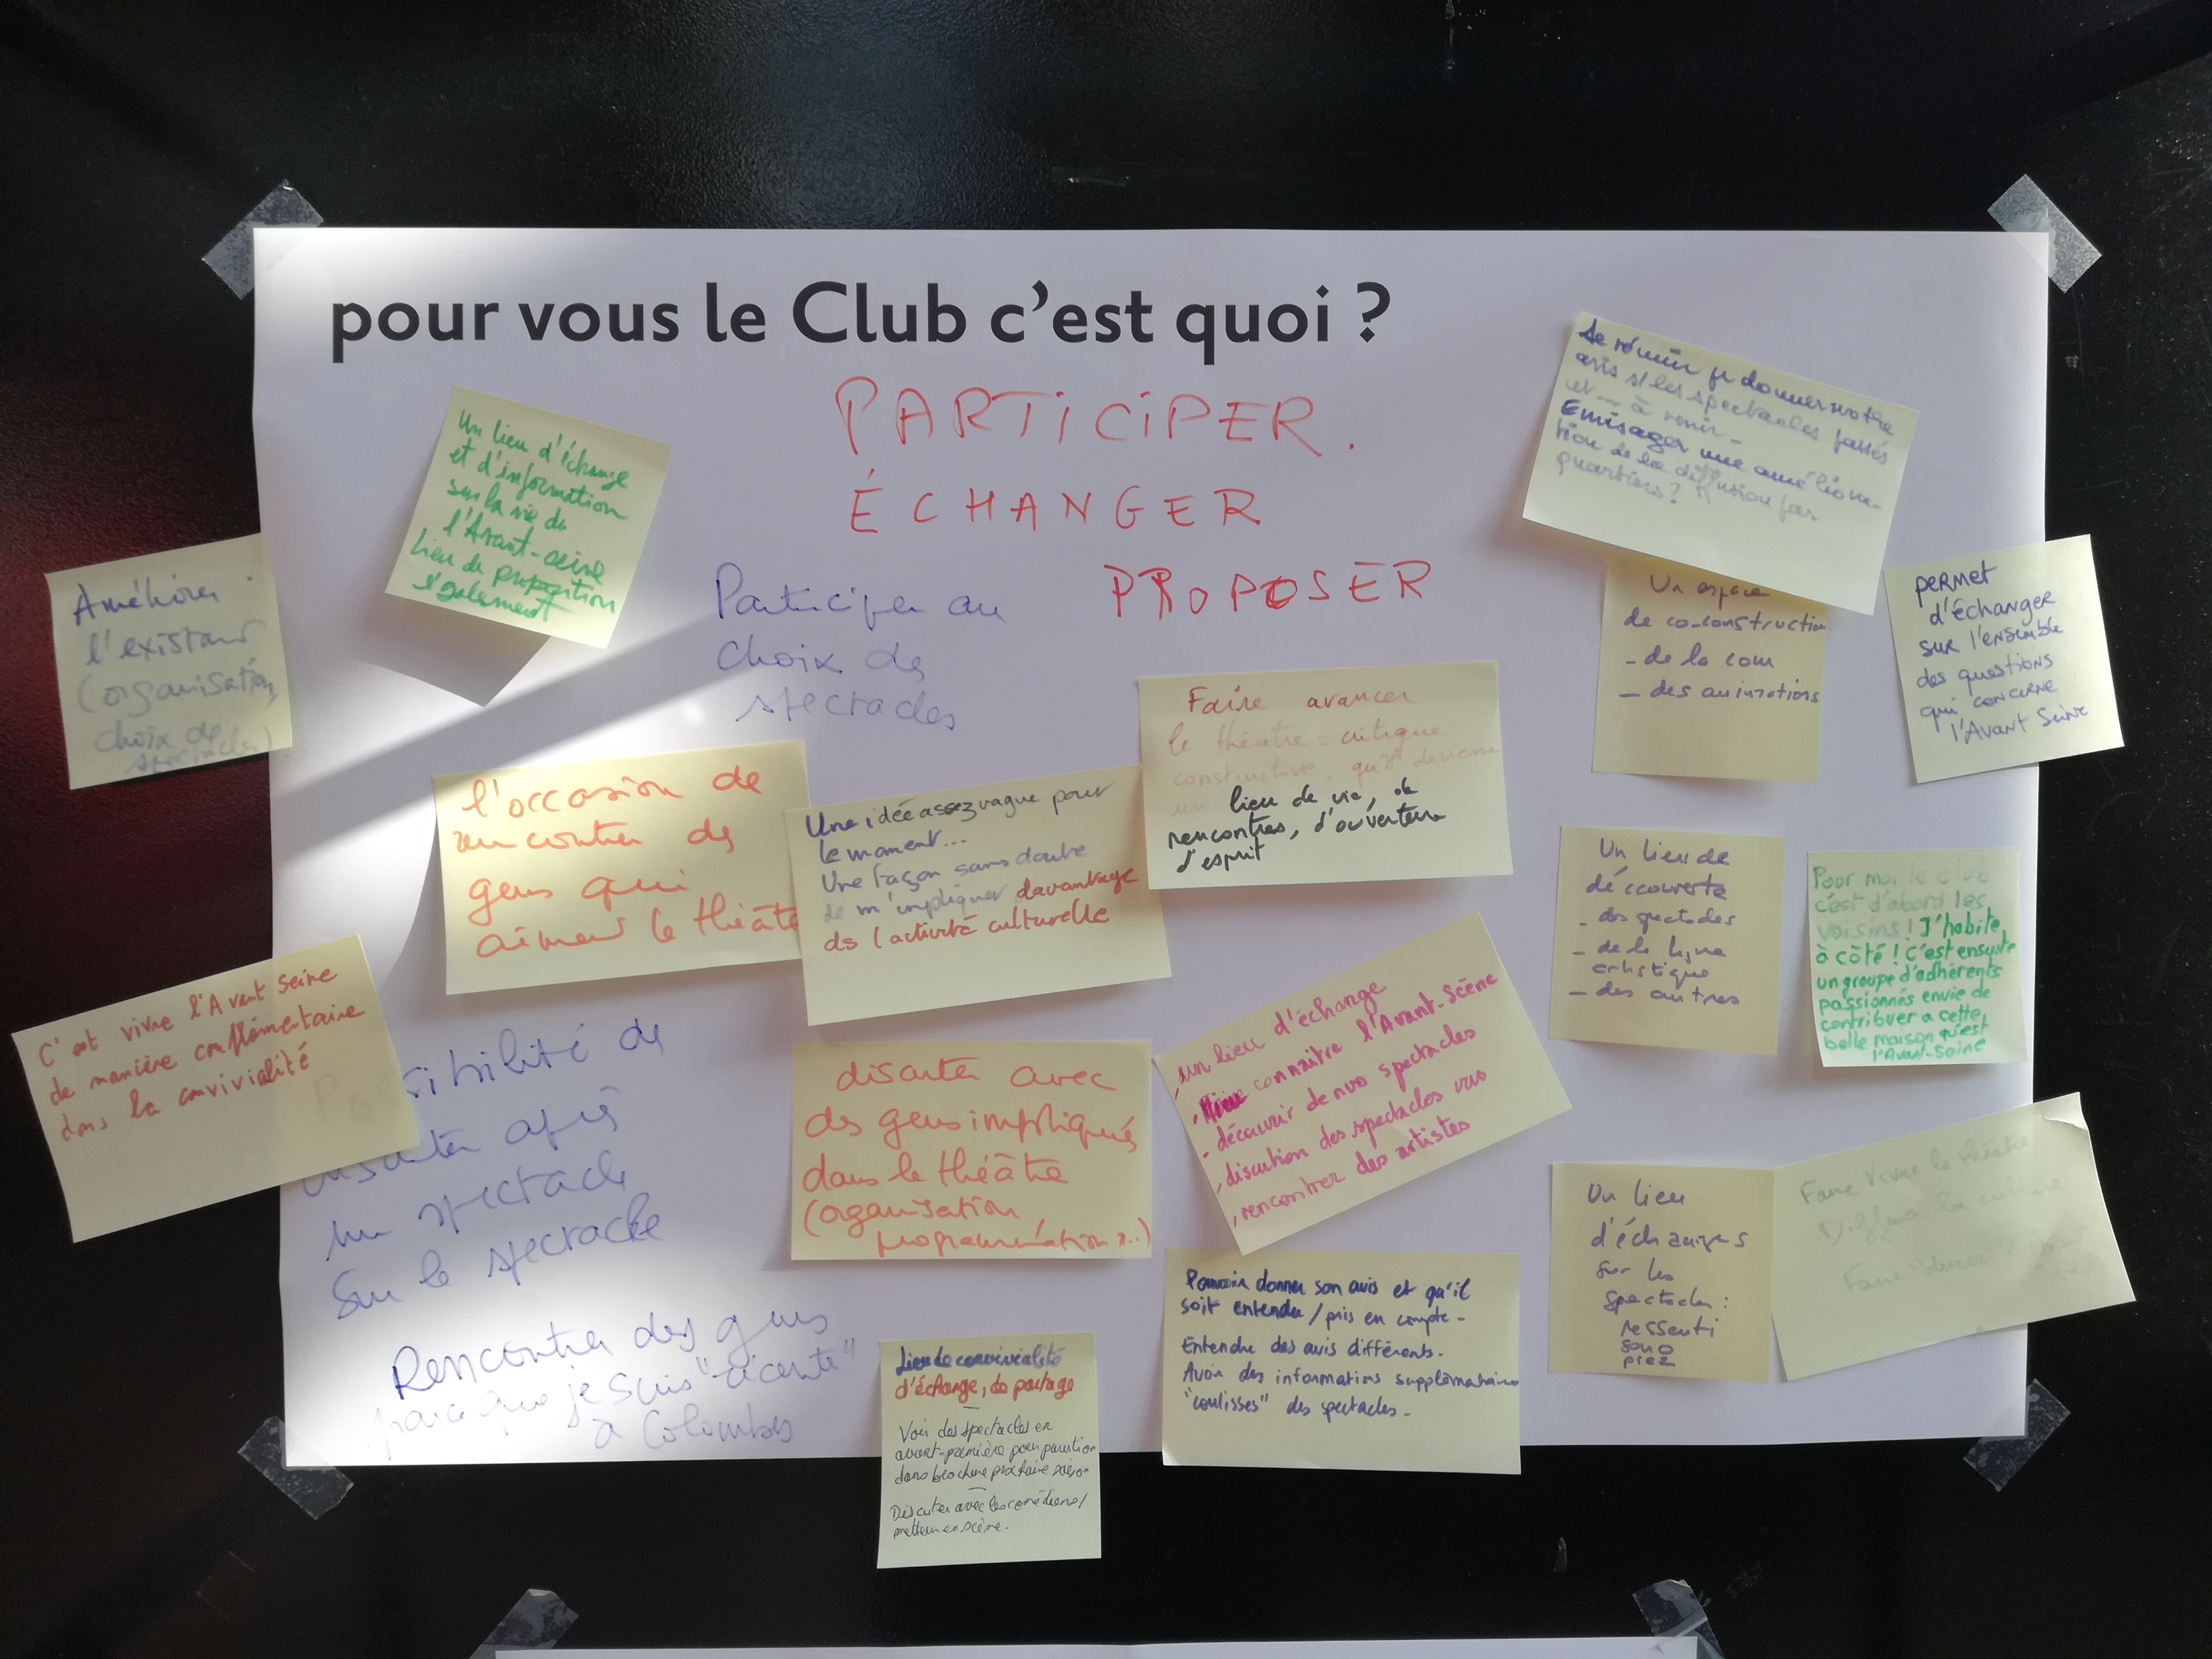 pour vous le Club c'est quoi ?
PARTICIPER.
ÉCHANGER
PROPOSER
Participer au
choix des
spectacles
Un lieu d'échange
et d'information
sur la vie de
l'Avant-seine
lieu de proposition
également
Améliorer
l'existant
(organisation,
choix de
spectacles)
Se réunir pr donner notre
avis s/ les spectacles passés
et -- à venir -
Envisager une améliora-
tion de la diffusion par
quartiers ?
Un espace
de co-construction
- de la com
- des animations
PERMET
d'échanger
sur l'ensemble
des questions
qui concerne
l'Avant Seine
Faire avancer
le théâtre = critique
constructive, qu'il devienne
un lieu de vie, de
rencontres, d'ouverture
d'esprit
l'occasion de
rencontrer des
gens qui
aiment le théâtre
Une idée assez vague pour
le moment...
Une façon sans doute
de m'impliquer davantage
ds l'activité culturelle
Un lieu de
découverte
- des spectacles
- de la ligne
artistique
- des autres
Pour moi le club
c'est d'abord les
voisins ! J'habite
à côté ! C'est ensuite
un groupe d'adhérents
passionnés envie de
contribuer a cette
belle maison qu'est
l'Avant-Seine
C'est vivre l'Avant Seine
de manière complémentaire
dans la convivialité
Possibilité de
discuter après
un spectacle
sur le spectacle
discuter avec
des gens impliqués
dans le théâtre
(organisation
programmation ...)
, un lieu d'échange
, Mieux connaître l'Avant-Scène
, découvrir de nvo spectacles
, discution des spectacles vus
, rencontrer des artistes
Un lieu
d'échanges
sur les
spectacles :
ressenti
Faire vivre le théâtre
Diffuser la culture
Faire
Pouvoir donner son avis et qu'il
soit entendu / pris en compte -
Entendre des avis différents.
Avoir des informations supplémentaires
"coulisses" des spectacles -
Rencontrer des gens
parce que je suis "récente"
à Colombes
Lieu de convivialité
d'échange, de partage
Voir des spectacles en
avant-première pour parution
dans brochure prochaine saison
Discuter avec les comédiens /
metteur en scène.